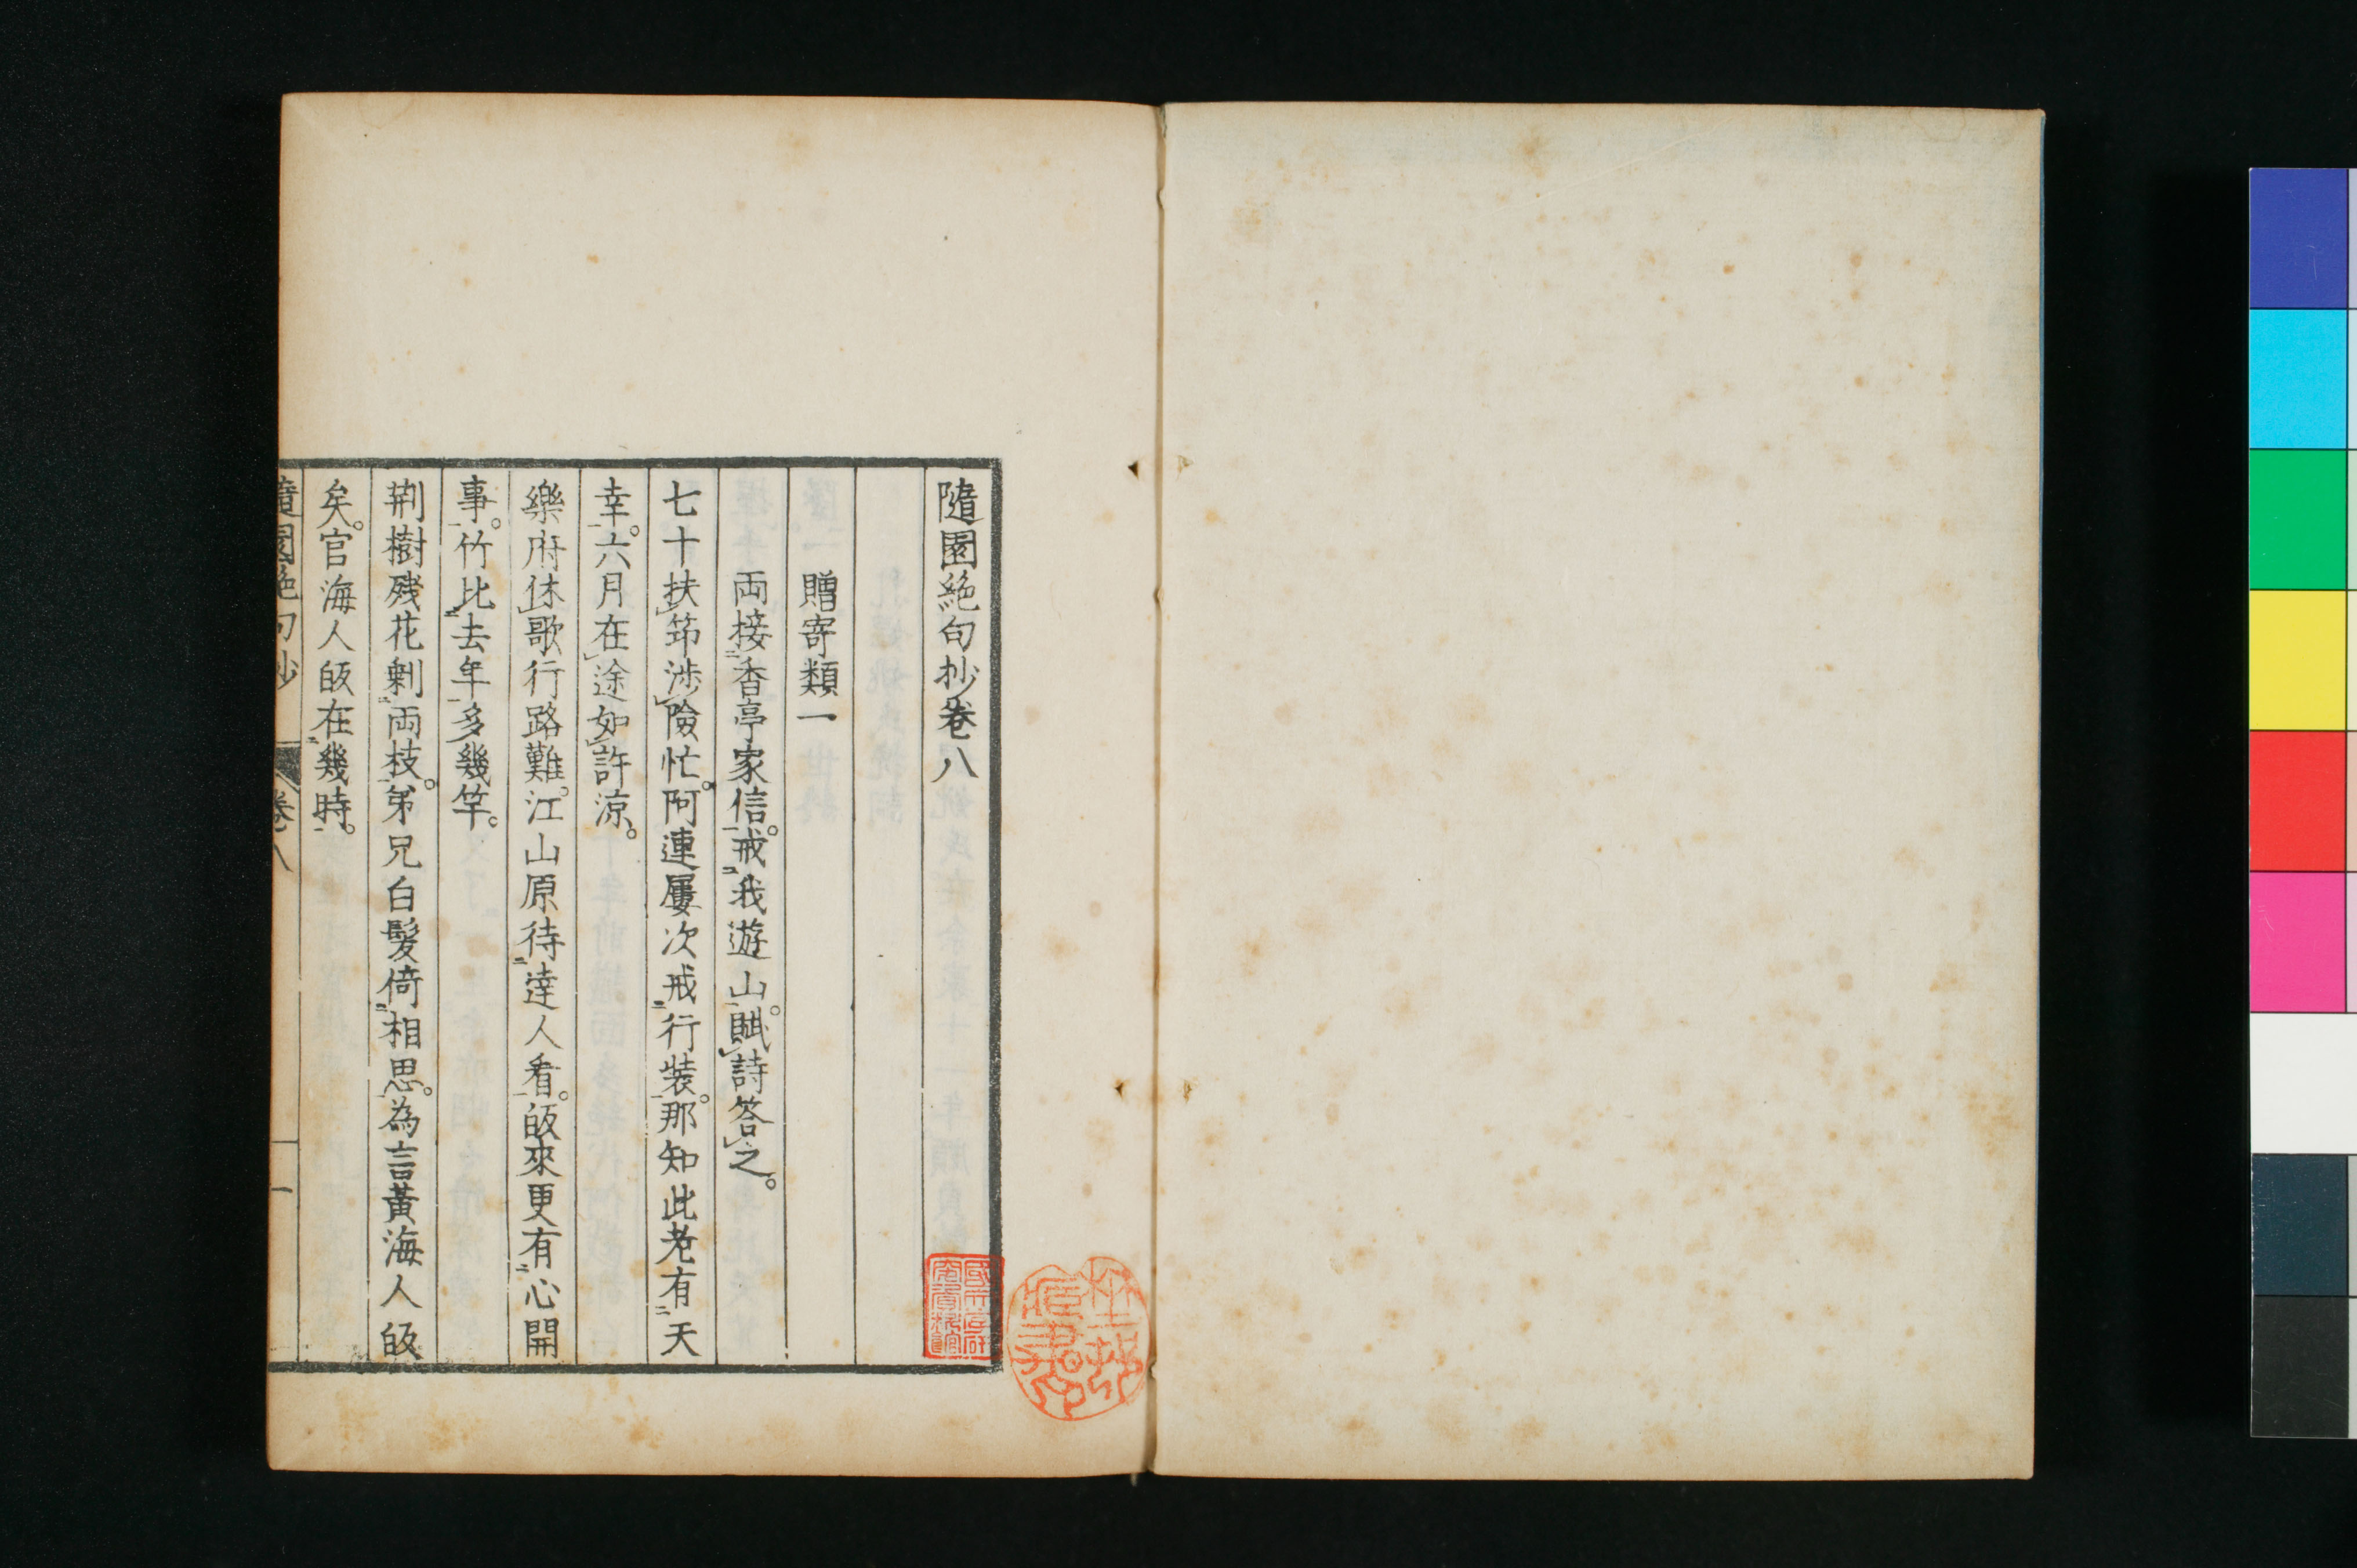 隨園絶句抄卷八
贈寄類一
両接香亭家信。戒我遊山。賦詩答之。
七十扶筇渉險忙。阿連屢次戒行装。那知此老有天
幸。六月在途如許涼。
樂府休歌行路難。江山原待達人看。皈來更有心開
事。竹比去年多幾竿。
荆樹残花剰両枝。弟兄白髮倚相思。為言黃海人皈
矣。官海人皈在幾時。
隨園絶句抄 卷八 一